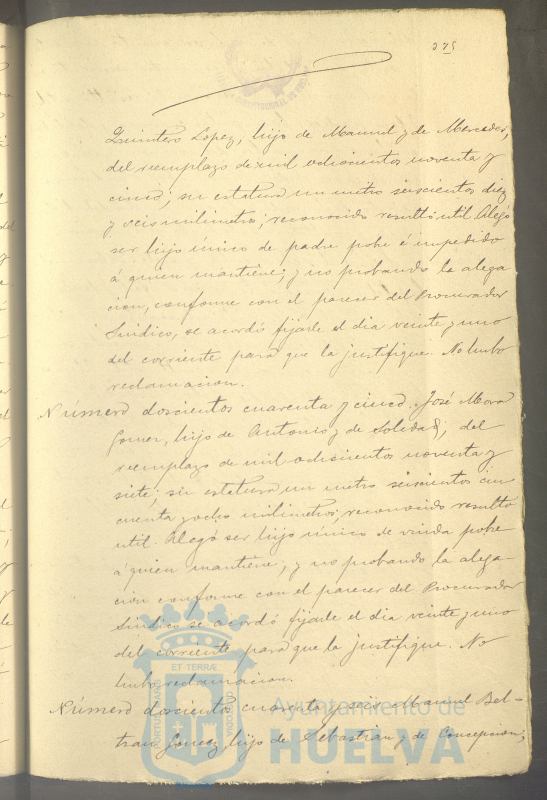 375
Quintero Lopez, hijo de Manuel y de Mercedes,
del reemplazo de mil ochocientos noventa y
cinco; su estatura un metro seiscientos diez
y seis milimetros; reconocido resultó util. Alegó
ser hijo único de padre pobre é impedido
á quien mantiene; y no probando la alega
cion, conforme con el parecer del Procurador
Sindico, se acordó fijarle el dia veinte y uno
del corriente para que la justifique. No hubo
reclamacion.
Número doscientos cuarenta y cinco. José Mora
Gomez, hijo de Antonio y de Soledad; del
reemplazo de mil ochocientos noventa y
siete; su estatura un metro seiscientos cin
cuenta y ocho milimetros; reconocido resultó
util. Alegó ser hijo único de viuda pobre
á quien mantiene; y no probando la alega-
cion conforme con el parecer del Procurador
Sindico se acordó fijarle el dia veinte y uno
del corriente para que la justifique. No
hubo reclamacion.
Número doscientos cuarenta y seis Manuel Bel-
tran Gomez, hijo de Sebastian y de Concepcion;
PORTUS MARIS
ET TERRÆ
CUSTODIA
Ayuntamiento de
HUELVA